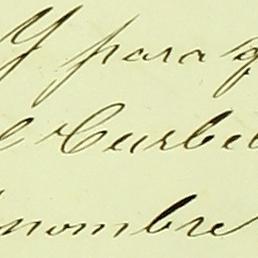 Y para q
Curbel
nombre